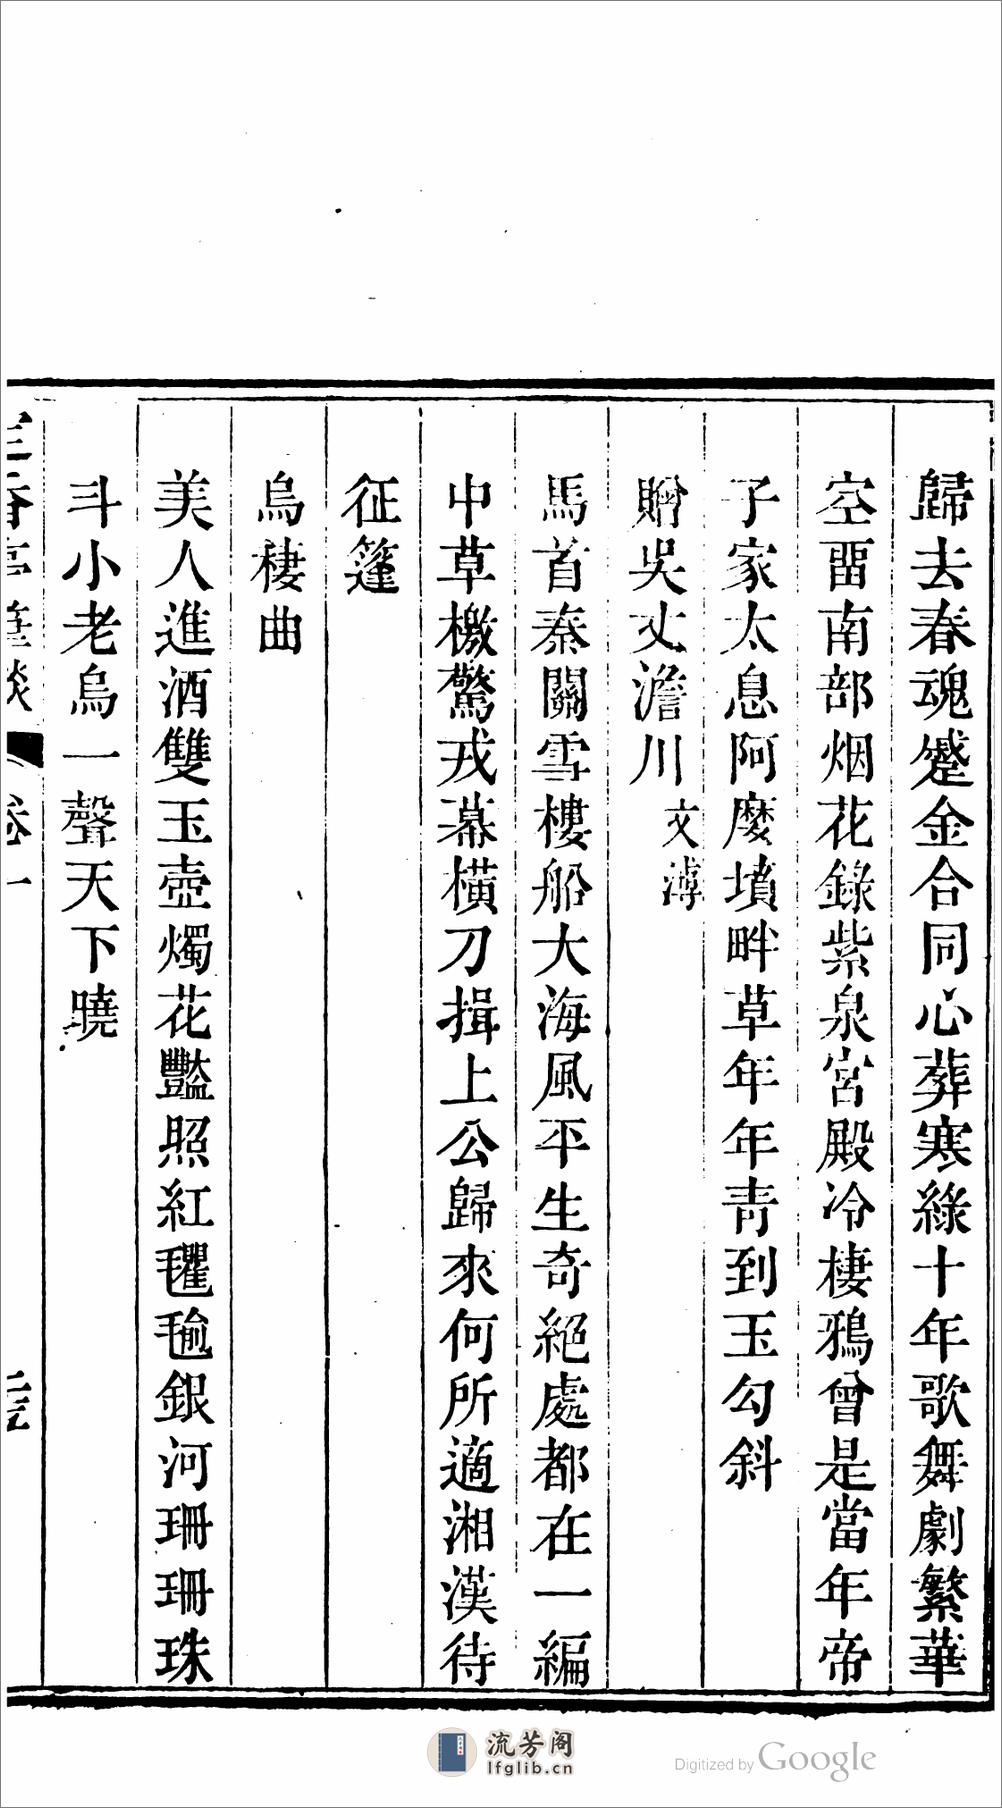 歸去春魂蹙金合同心葬寒綠十年歌舞劇繁華
空畱南部烟花錄紫泉宮殿冷棲鴉曾是當年帝
子家太息阿麼墳畔草年年青到玉勾斜
贈吳丈澹川文溥
馬首秦關雪樓船大海風平生奇絕處都在一編
中草檄驚戎幕橫刀揖上公歸來何所適湘漢待
征篷
烏棲曲
美人進酒雙玉壺燭花豔照紅氍毹銀河珊珊珠
斗小老烏一聲天下曉
定香亭筆談 卷一
流芳阁
lfglib.cn
Digitized by Google